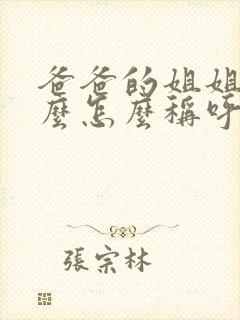 爸爸的姐姐
麼怎麼稱呼
張宗林